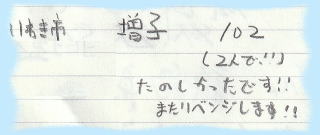 いわき市 増子 102
(2人で!!)
たのしかったです!!
またリベンジします!!